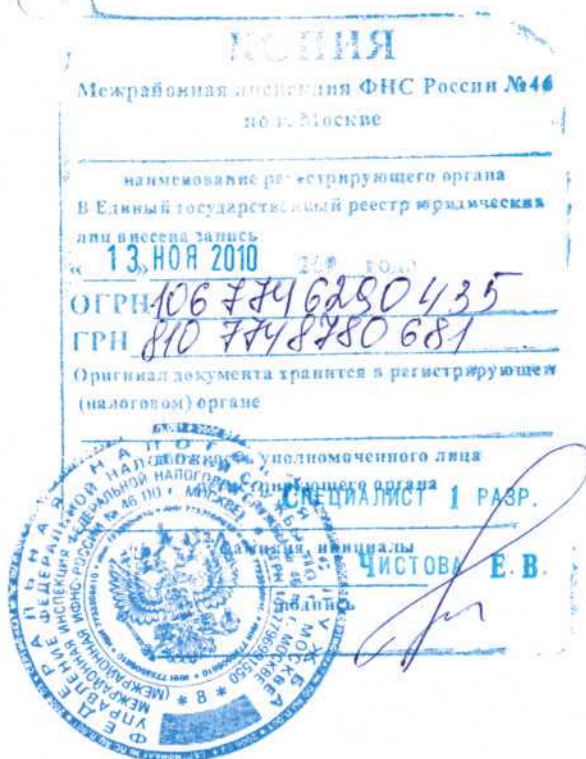 КОПИЯ
Межрайонная инспекция ФНС России №46
по г. Москве
наименование регистрирующего органа
В Единый государственный реестр юридических
лиц внесена запись
« 13 » НОЯ 2010 года
ОГРН 1067746290435
ГРН 8107748780681
Оригинал документа хранится в регистрирующем
(налоговом) органе
должность уполномоченного лица
регистрирующего органа
СПЕЦИАЛИСТ 1 РАЗР.
фамилия, инициалы
ЧИСТОВА Е.В.
подпись
ФЕДЕРАЛЬНАЯ НАЛОГОВАЯ СЛУЖБА
УПРАВЛЕНИЕ ФЕДЕРАЛЬНОЙ НАЛОГОВОЙ СЛУЖБЫ ПО Г. МОСКВЕ
МЕЖРАЙОННАЯ ИНСПЕКЦИЯ ФЕДЕРАЛЬНОЙ НАЛОГОВОЙ СЛУЖБЫ № 46 ПО Г. МОСКВЕ
(МЕЖРАЙОННАЯ ИФНС РОССИИ № 46 ПО Г. МОСКВЕ)
* 8 *